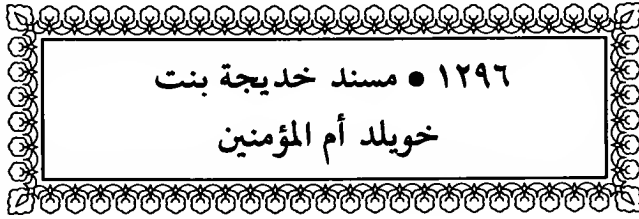 ١٢٩٦ • مسند خديجة بنت
خويلد أم المؤمنين